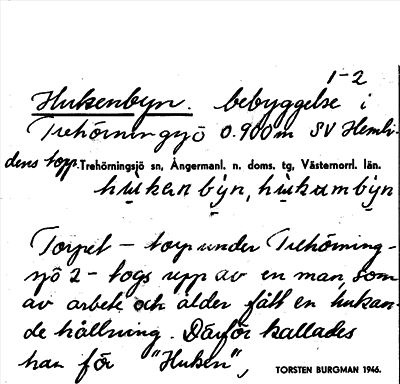 1-2
Hukenbyn. bebyggelse i
Trehörningsjö 0.900m SV Hemli-
dens topp. Trehörningsjö sn, Ångermanl. n. doms. tg, Västernorrl. län.
hu̇kanby̱n, hu̇kamby̱n
Torpet – torp under Trehörning-
sjö 2 – togs upp av en man, som
av arbete och ålder fått en hukan-
de hållning. Därför kallades
han för "Huken",
TORSTEN BURGMAN 1946.